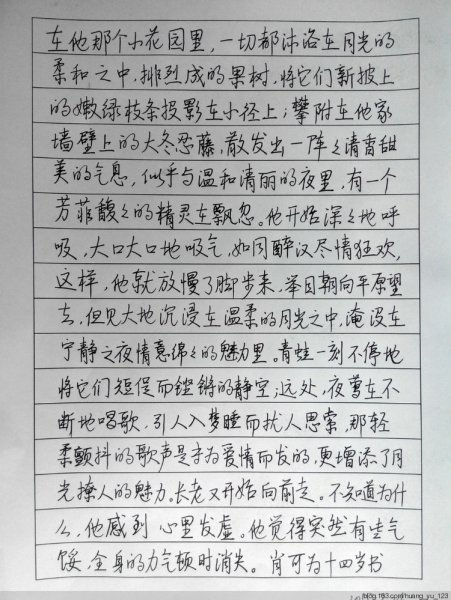 在他那个小花园里，一切都沐浴在月光的
柔和之中，排烈成的果树，将它们新披上
的嫩绿枝条投影在小径上；攀附在他家
墙壁上的大冬忍藤，散发出一阵々清香甜
美的气息，似乎与温和清丽的夜里，有一个
芳菲馥々的精灵在飘忽。他开始深々地呼
吸，大口大口地吸气，如同醉汉尽情狂欢，
这样，他就放慢了脚步来，举目朝向平原望
去，但见大地沉浸在温柔的月光之中，淹没在
宁静之夜情意绵々的魅力里。青蛙一刻不停地
将它们短促而铿锵的静空；远处，夜莺在不
断地唱歌，引人入梦睡而扰人思索，那轻
柔颤抖的歌声是专为爱情而发的，更增添了月
光撩人的魅力。长老又开始向前走。不知道为什
么，他感到心里发虚。他觉得突然有些气
馁，全身的力气顿时消失。肖可为十四岁书
blog.163.com/huang_yu_123